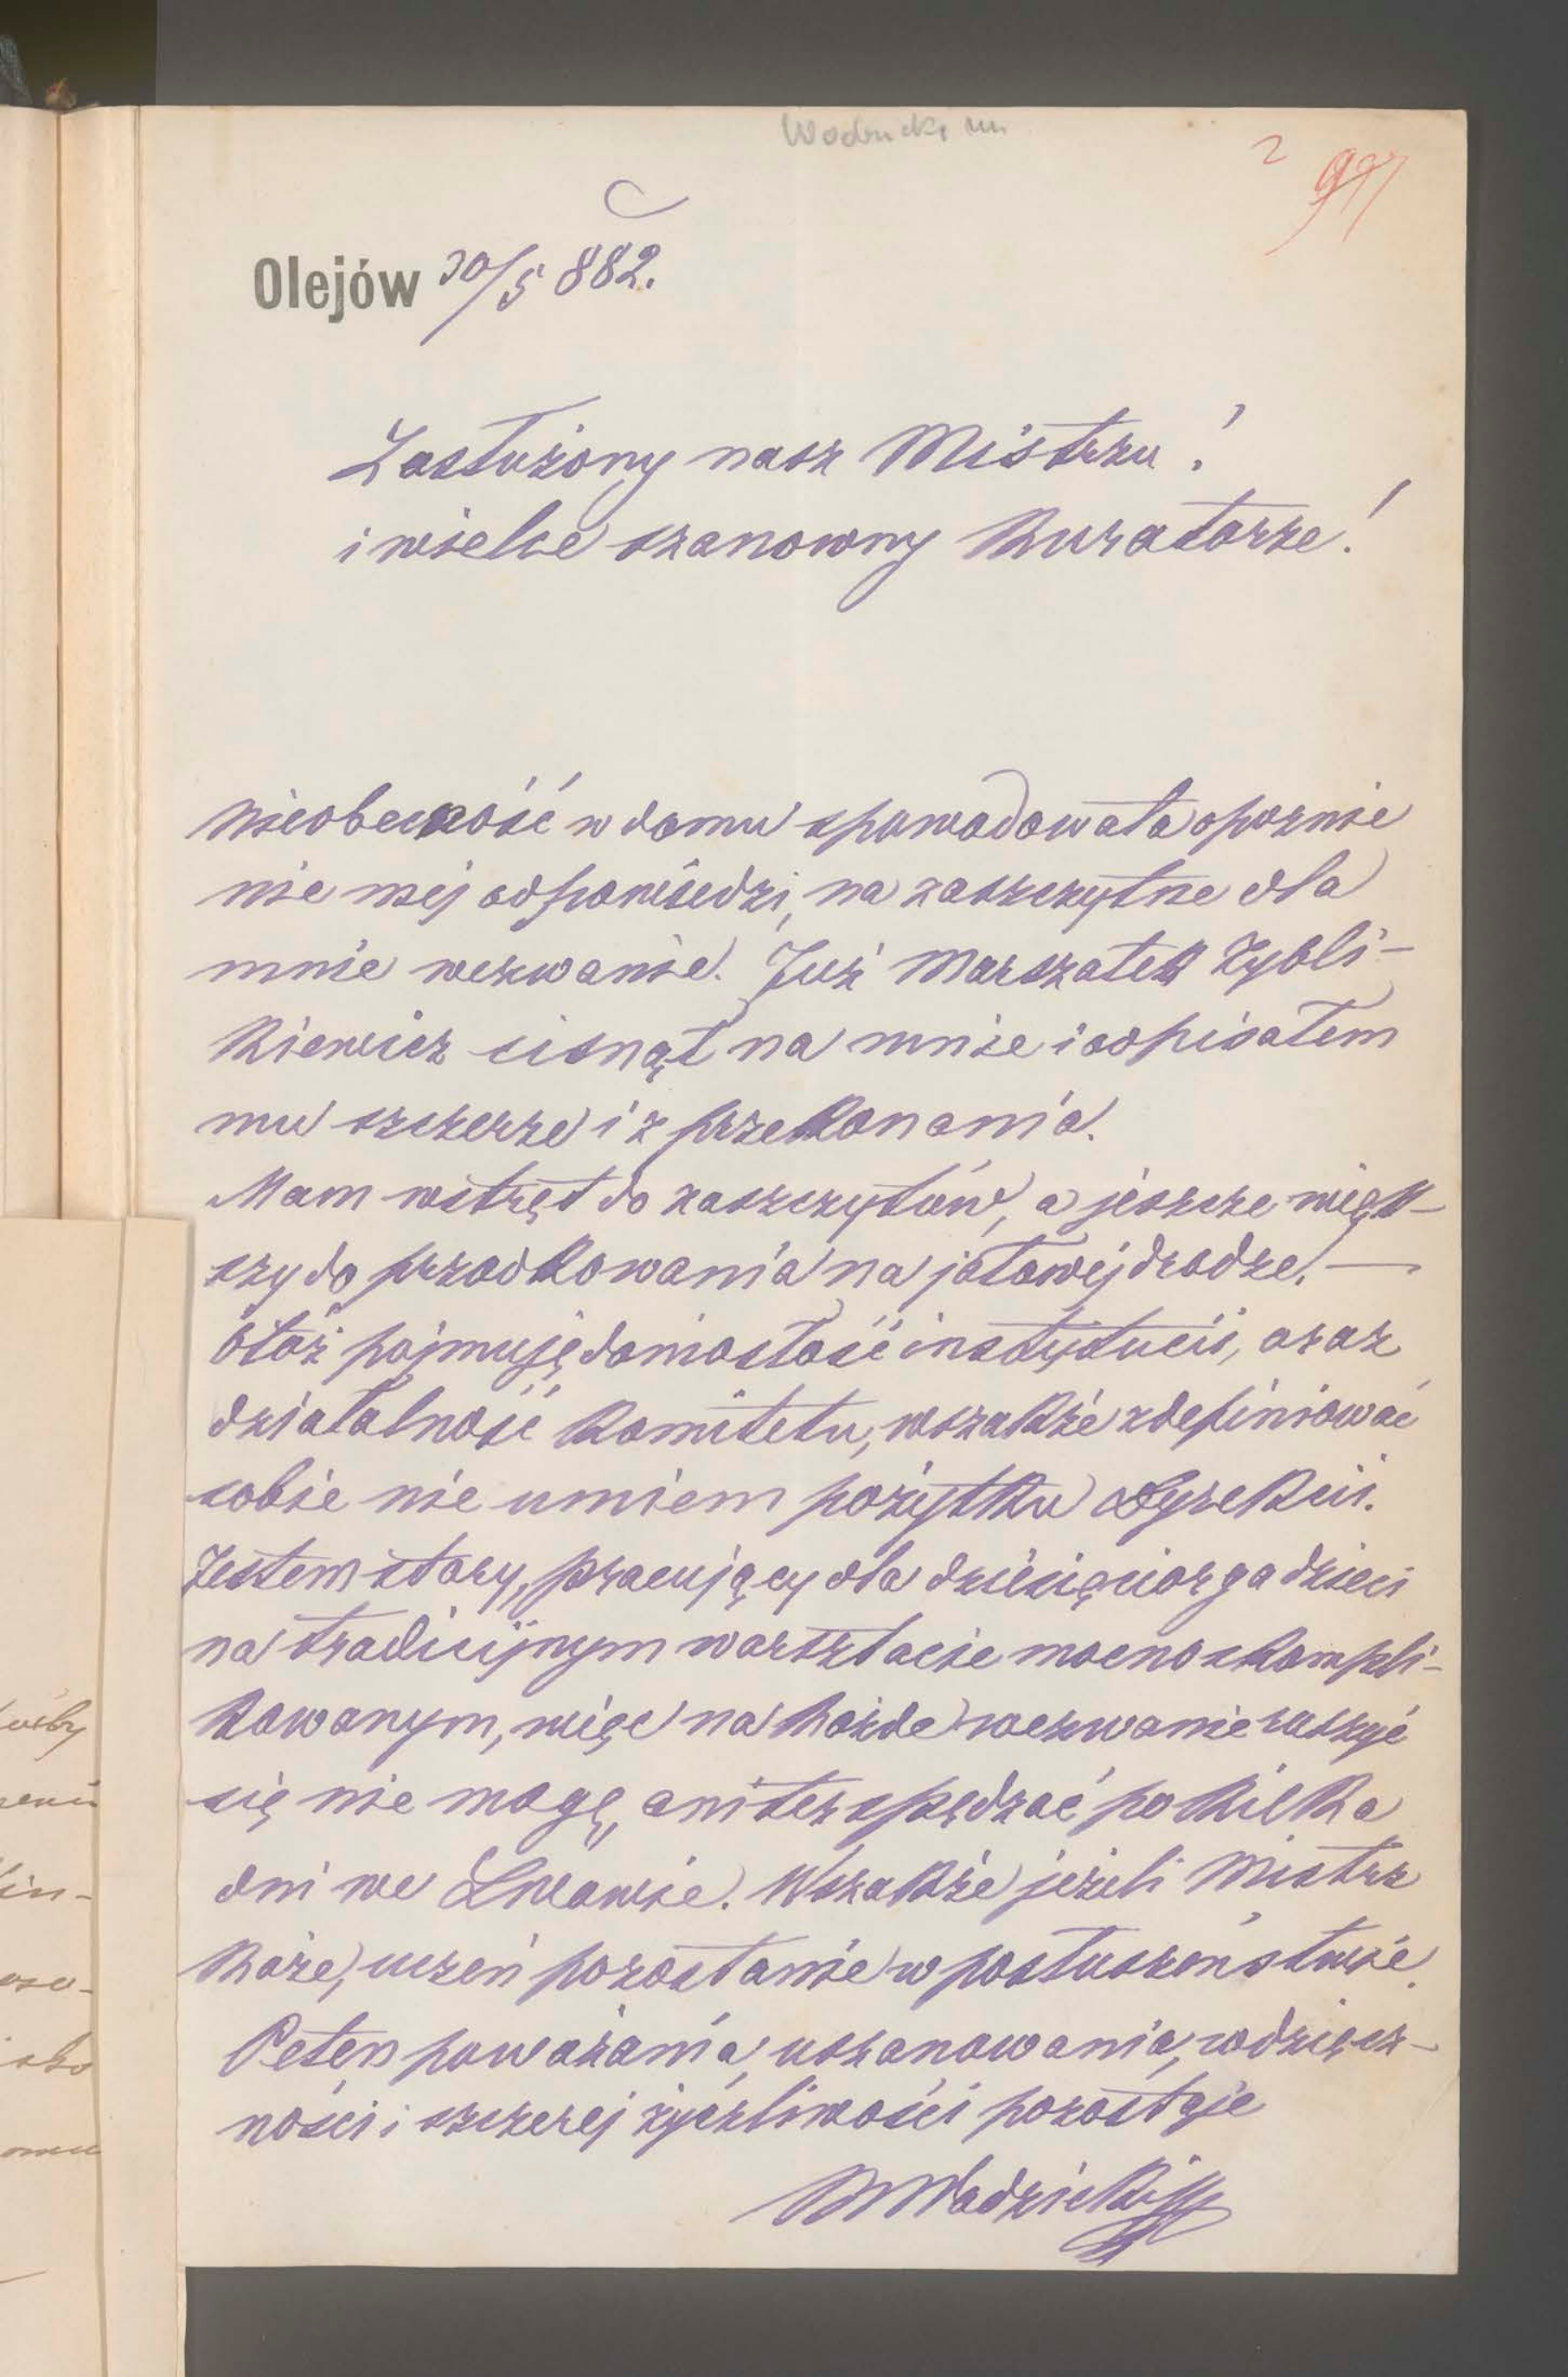 2 997
Olejów 30/5 882.
Zasłużony nasz Mistrzu!
i wielce szanowny Kuratorze!
nieobecność w domu spowodowała opoznie
nie mej odpowiedzi, na zaszczytne dla
mnie wezwanie. Już Marszałek Zybli-
kiewicz cisnął na mnie i odpisałem
mu szczerze i z przekonania.
Mam wstręt do zaszczytów, a jeszcze więk-
szy do przodkowania na jałowej drodze. —
Otóż pojmuję doniosłość instytucii, oraz
działalność Komitetu, wszakże zdefiniować
sobie nie umiem pożytku Dyrekcii.
Jestem stary, pracujący dla dziesięciorga dzieci
na tradicijnym warsztacie mocno skompli-
kowanym, więc na każde wezwanie ruszyć
się nie mogę, ani też spędzać po kilka
dni we Lwowie. Wszakże jeżeli Mistrz
każe, uczeń pozostanie w posłuszeństwie.
Pełen poważania, uszanowania, wdzięcz-
ności i szczerej życzliwości pozostaje
Wodzicki